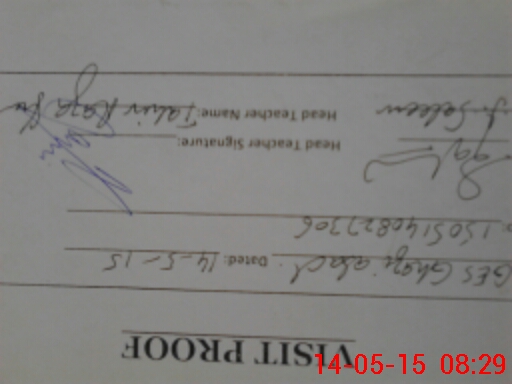 VISIT PROOF
GES Ghazi abad Dated: 14-5-15
15051140827306
Head Teacher Signature:
Saleem Head Teacher Name: Tahir Raza
14-05-15 08:29